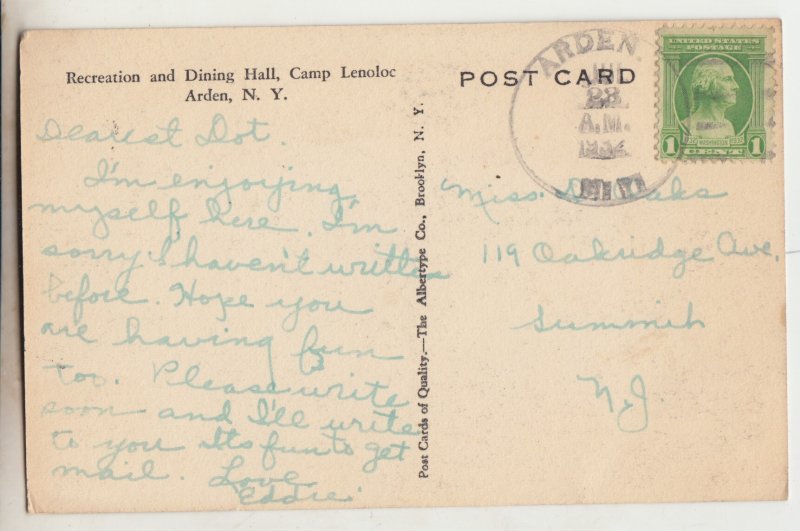 Recreation and Dining Hall, Camp Lenoloc
Arden, N. Y.
Dearest Dot.
I'm enjoying
myself here. I'm
sorry I haven't written
before. Hope you
are having fun
too. Please write
soon and I'll write
to you Its fun to get
mail. Love
Eddie.
Post Cards of Quality.—The Albertype Co., Brooklyn, N. Y.
POST CARD
ARDEN.
23
A.M.
N.Y.
UNITED STATES
POSTAGE
WASHINGTON
1 1
CENT
Miss.
119 Oakridge Ave.
Summit
NJ